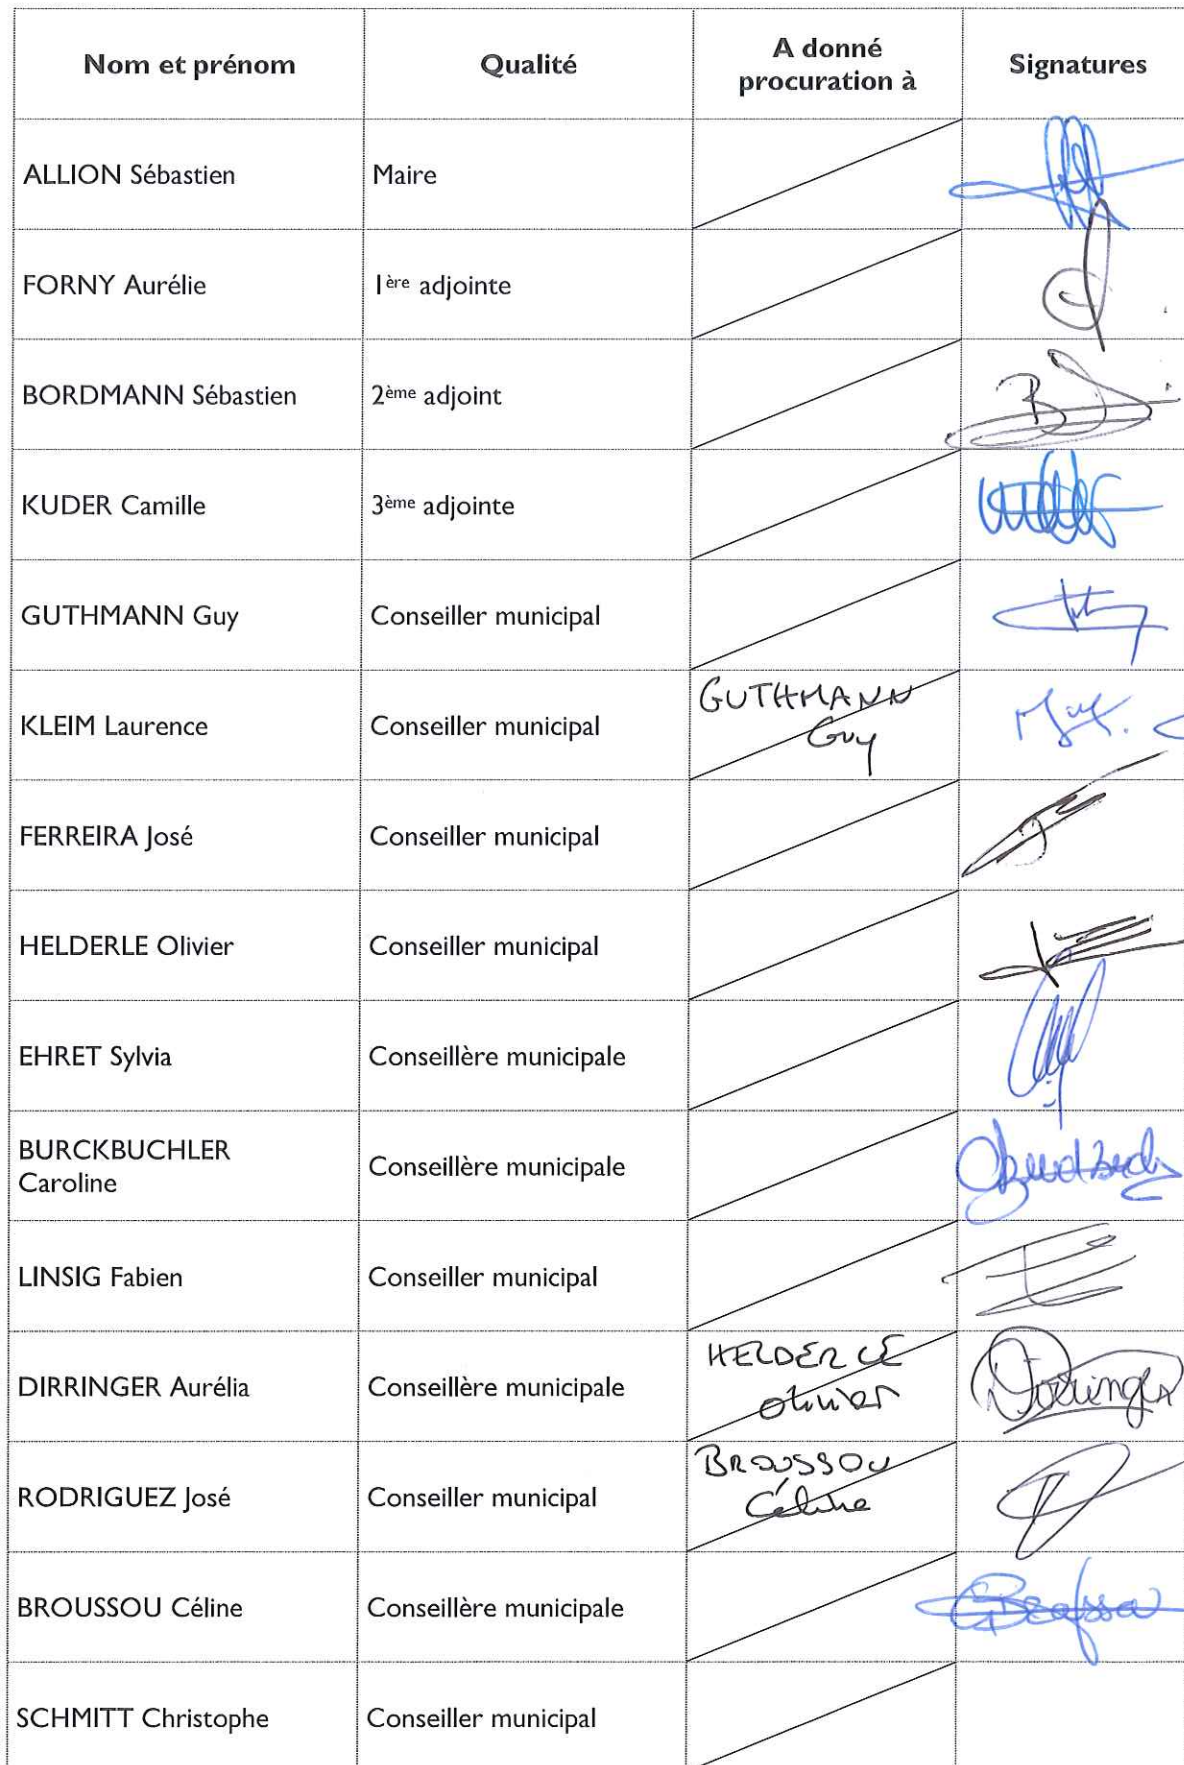 Nom et prénom Qualité A donné procuration à Signatures
ALLION Sébastien Maire
FORNY Aurélie 1ère adjointe
BORDMANN Sébastien 2ème adjoint
KUDER Camille 3ème adjointe
GUTHMANN Guy Conseiller municipal
KLEIM Laurence Conseiller municipal GUTHMANN Guy
FERREIRA José Conseiller municipal
HELDERLE Olivier Conseiller municipal
EHRET Sylvia Conseillère municipale
BURCKBUCHLER Caroline Conseillère municipale
LINSIG Fabien Conseiller municipal
DIRRINGER Aurélia Conseillère municipale HELDERLE Olivier Dirringer
RODRIGUEZ José Conseiller municipal BROUSSOU Céline
BROUSSOU Céline Conseillère municipale
SCHMITT Christophe Conseiller municipal